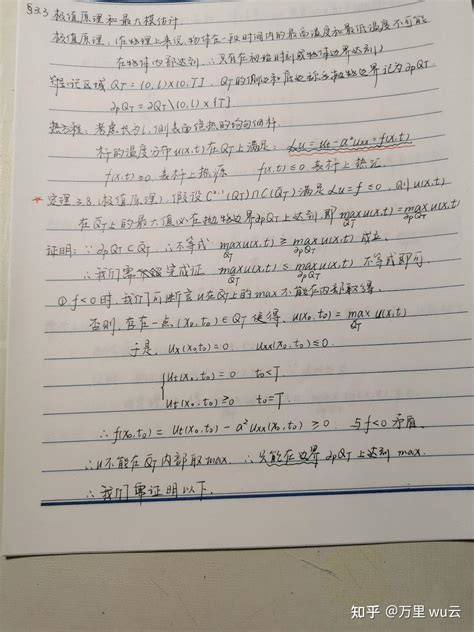 §3.3 极值原理和最大模估计.
极值原理:(在物理上来说,物体在一段时间内的最高温度和最低温度不可能
在物体内部达到,∴只在初始时刻或物体边界达到)
记区域 QT = (0, l)×(0, T]. QT的侧边和底边称为抛物边界记为∂pQT.
∂pQT = ∂QT\(0, l)×{T}
热方程, 考虑长为l, 侧表面绝热的均匀细杆.
杆的温度分布u(x,t)在QT上满足: Lu = ut - a²uxx = f(x,t)
f(x,t)≥0 表杆上热源 f(x,t)≤0 表杆上热汇.
* 定理3.8.(极值原理). 假设 C²·¹(QT)∩C(Q̄T)满足 Lu = f ≤ 0. 则 u(x,t)
在Q̄T上的最大值必在抛物边界∂pQT上达到.即 max Q̄T u(x,t) = max ∂pQT u(x,t)
证明: ∵ ∂pQT ⊂ Q̄T ∴不等式 max Q̄T u(x,t) ≥ max ∂pQT u(x,t) 成立.
∴我们需完成证 max Q̄T u(x,t) ≤ max ∂pQT u(x,t) 不等式即可.
① f<0时, 我们可断言 u在Q̄T上的max不能在内部取得.
否则, 存在一点(x₀,t₀)∈QT 使得, u(x₀,t₀) = max Q̄T u(x,t)
于是, ux(x₀,t₀) = 0 uxx(x₀,t₀) ≤ 0.
{ut(x₀,t₀) = 0 t₀<T
ut(x₀,t₀) ≥ 0 t₀=T
∴ f(x₀,t₀) = ut(x₀,t₀) - a²uxx(x₀,t₀) ≥ 0. 与f<0矛盾.
∴u不能在Q̄T内部取max. ∴只能在边界∂pQT上达到max.
∴我们需证明以下.
知乎 @万里 wu云